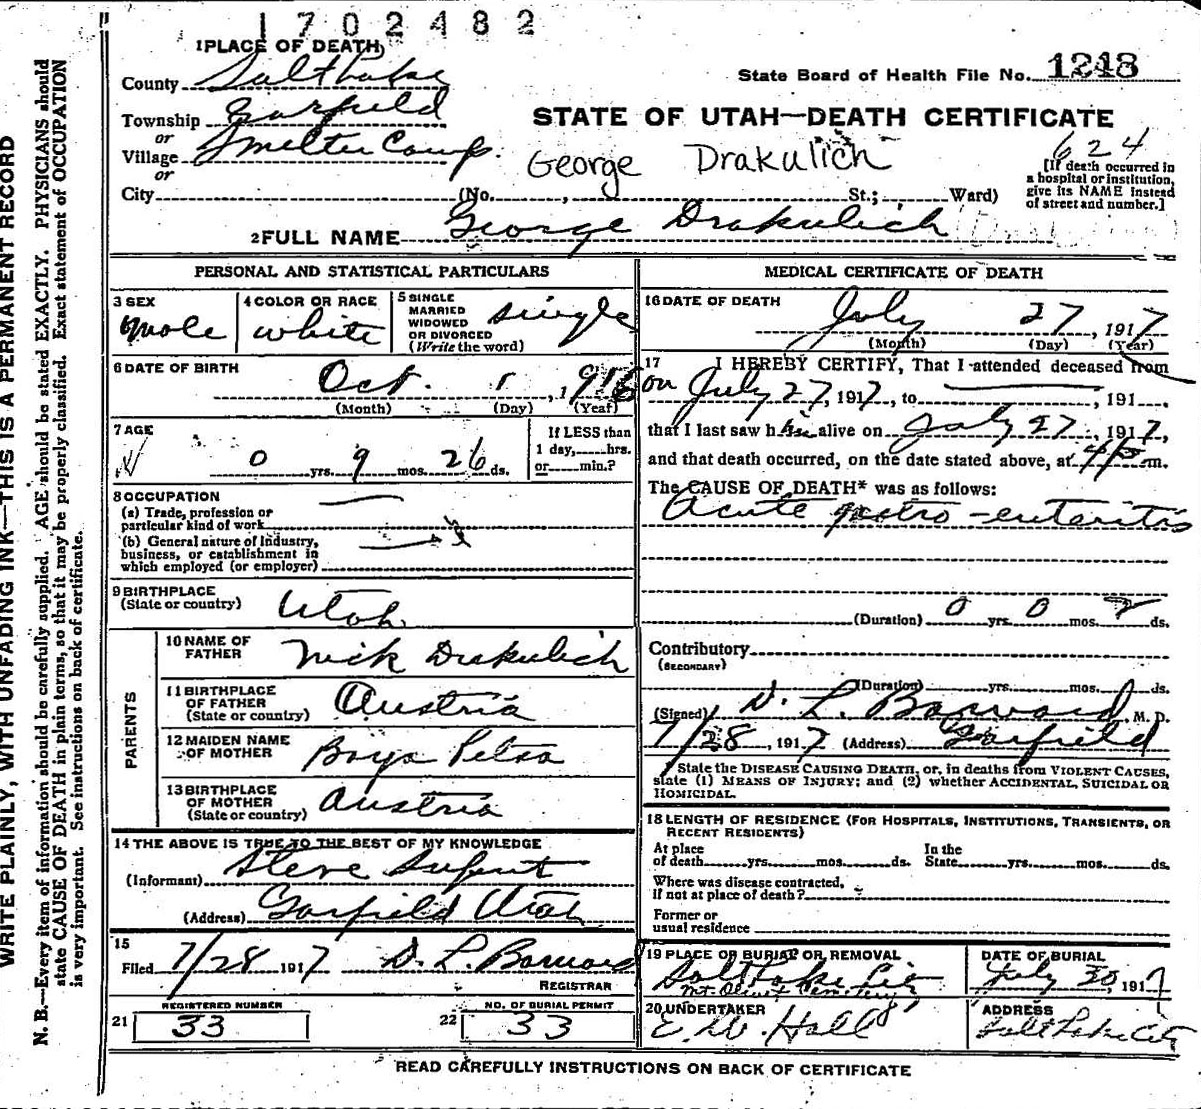 1702482
1 PLACE OF DEATH
County Salt Lake
State Board of Health File No. 1248
Township Garfield
or
STATE OF UTAH—DEATH CERTIFICATE
Village Smelter Camp.
or
George Drakulich
624
[If death occurred in
a hospital or institution,
give its NAME instead
of street and number.]
City (No. , St.; Ward)
2 FULL NAME George Drakulich
PERSONAL AND STATISTICAL PARTICULARS
3 SEX
male
4 COLOR OR RACE
white
5 SINGLE
MARRIED
WIDOWED
OR DIVORCED
(Write the word)
single
6 DATE OF BIRTH
Oct. 1, 1916
(Month) (Day) (Year)
7 AGE
0 yrs. 9 mos. 26 ds.
If LESS than
1 day, hrs.
or min.?
8 OCCUPATION
(a) Trade, profession or
particular kind of work
(b) General nature of Industry,
business, or establishment in
which employed (or employer)
9 BIRTHPLACE
(State or country)
Utah
PARENTS
10 NAME OF
FATHER
Nick Drakulich
11 BIRTHPLACE
OF FATHER
(State or country)
Austria
12 MAIDEN NAME
OF MOTHER
13 BIRTHPLACE
OF MOTHER
(State or country)
Austria
14 THE ABOVE IS TRUE TO THE BEST OF MY KNOWLEDGE
(Informant) Steve
(Address) Garfield Utah
15
Filed 7/28 1917 D. L. Barnard
REGISTRAR
REGISTERED NUMBER
21 33
NO. OF BURIAL PERMIT
22 33
MEDICAL CERTIFICATE OF DEATH
16 DATE OF DEATH
July 27, 1917
(Month) (Day) (Year)
17 I HEREBY CERTIFY, That I attended deceased from
on July 27, 1917, to , 191 .
that I last saw him alive on July 27, 1917,
and that death occurred, on the date stated above, at m.
The CAUSE OF DEATH* was as follows:
Acute gastro-enteritis
(Duration) 0 yrs. 0 mos. 2 ds.
Contributory
(SECONDARY)
(Duration) yrs. mos. ds.
(Signed) D. L. Barnard M. D.
7/28, 1917 (Address) Garfield
State the DISEASE CAUSING DEATH, or, in deaths from VIOLENT CAUSES,
state (1) MEANS OF INJURY; and (2) whether ACCIDENTAL, SUICIDAL OR
HOMICIDAL.
18 LENGTH OF RESIDENCE (FOR HOSPITALS, INSTITUTIONS, TRANSIENTS, OR
RECENT RESIDENTS)
At place
of death yrs. mos. ds.
In the
State yrs. mos. ds.
Where was disease contracted,
if not at place of death?
Former or
usual residence
19 PLACE OF BURIAL OR REMOVAL
Salt Lake City
Mt. Olivet Cemetery
DATE OF BURIAL
July 30, 1917
20 UNDERTAKER
E. W. Hall
ADDRESS
Salt Lake City
READ CAREFULLY INSTRUCTIONS ON BACK OF CERTIFICATE
WRITE PLAINLY, WITH UNFADING INK—THIS IS A PERMANENT RECORD
N. B.—Every item of information should be carefully supplied. AGE should be stated EXACTLY. PHYSICIANS should
state CAUSE OF DEATH in plain terms, so that it may be properly classified. Exact statement of OCCUPATION
is very important. See instructions on back of certificate.